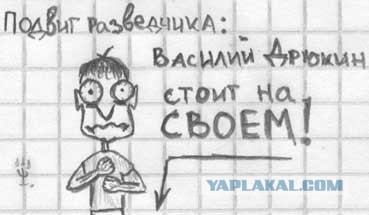 Подвиг разведчика:
Василий Дрюкин
стоит на
СВОЕМ!
YAPLAKAL.COM